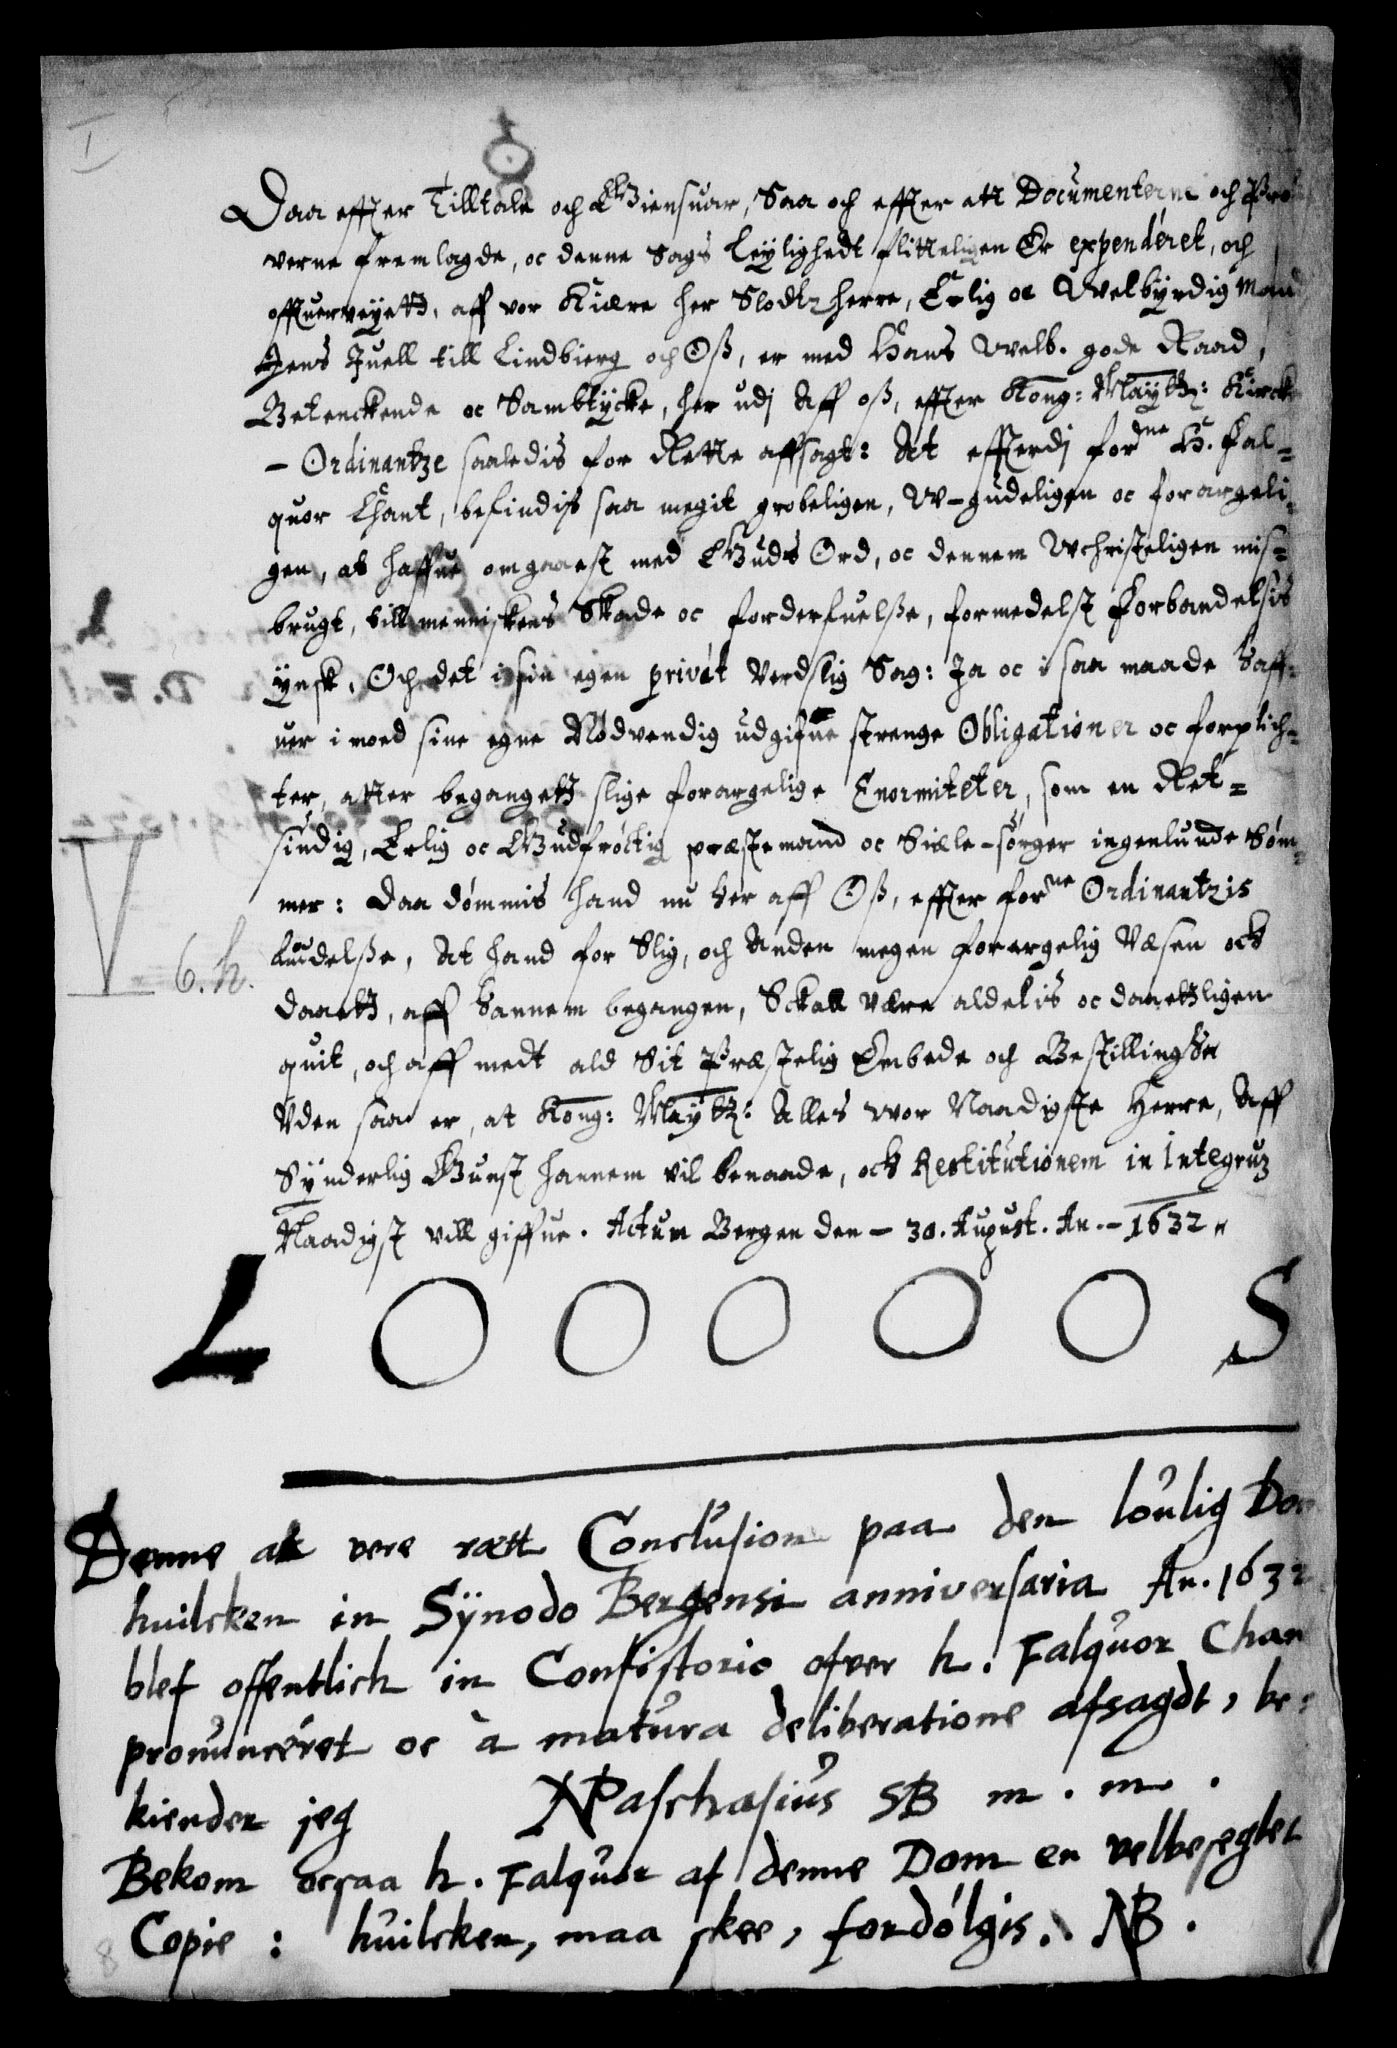 Daa effter Tilltale och Giensuar, Saa och effter att Documenterne och Prou
verne fremlagde, oc denne Sags Leylighedt flitteligen Er expenderet, och
offuerveyett, aff vor Kiære her Slodtz herre, Erlig oc Welbyrdig Mand
Jens Juell till Lindbierg och Oß, er med Hans Welb. gode Raad,
Betenckende oc Samtycke, her udj Aff oß, effter Kong: Maytz: Kircke
- Ordinantze saaledis for Rette affsagt: At efftterdj forne H. Fal=
quor Chant, befindis saa megit grobeligen, W-gudeligen oc forargeli=
gen, at haffue omgaaest med Guds Ord, oc dennem Wchristeligen mis=
brugt, till menniskens Skade oc forderfuelße, formedelst Forbandelsis
ynsk, Och det i sin egen privat Verdslig Sag: Ja oc i saa maade haff=
uer imoed sine egne Nødvendig udgifne strenge Obligationer oc forplich=
ter, atter begangett slige forargelige Enormiteter, som en Ret=
sindig, Erlig oc Gudfrøctig præstemand oc Siæle-sørger ingenlunde Søm=
mer: Daa dømmis hand nu her aff Oß, effter forne Ordinantzis
Liudelße, At hand for Slig, och Anden megen forargelig Væsen ock
6. h.
daarlig, aff hannem begangen, Schall være aldelis oc daartligen
quit, och aff medt ald Sit Præstelig Embede och Bestilling
Uden saa er, at Kong: Maytz: Alles vor Naadigste Herre, Aff
Synderlig Gunst hannem vil benaade, ock Restitutionem in Integrum
Naadigst vill giffue. Actum Bergen den - 30. August. An. - 1632
L O O O O O S
Denne at vere rætt Conclusion paa den loulig Dom
huilcken in Synodo Bergensi anniversaria An. 1632
blef offentlich in Consistorio ofver h. Falquor Chan
pronunceret oc à matura deliberatione afsagdt, be=
kiender jeg NPaschasius SB m. m.
Bekom ocsaa h. Falquor af denne Dom en velbeseglet
Copie: huilcken, maa skee, fordólgis. NB.
8